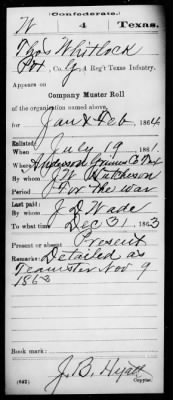 (Confederate.)
W 4 Texas.
Thos Whitlock
Pvt, Co. G, 4 Reg't Texas Infantry.
Appears on
Company Muster Roll
of the organization named above,
for Jan & Feb, 1864
Enlisted:
When July 19, 1861.
Where Anderson Grimes Co Tex
By whom J W Hutcheson
Period For the war
Last paid:
By whom J D Wade
To what time Dec 31, 1863
Present or absent Present
Remarks: Detailed as
Teamster Nov 9
1863
Book mark:
J. B. Hyatt
(642) Copyist.